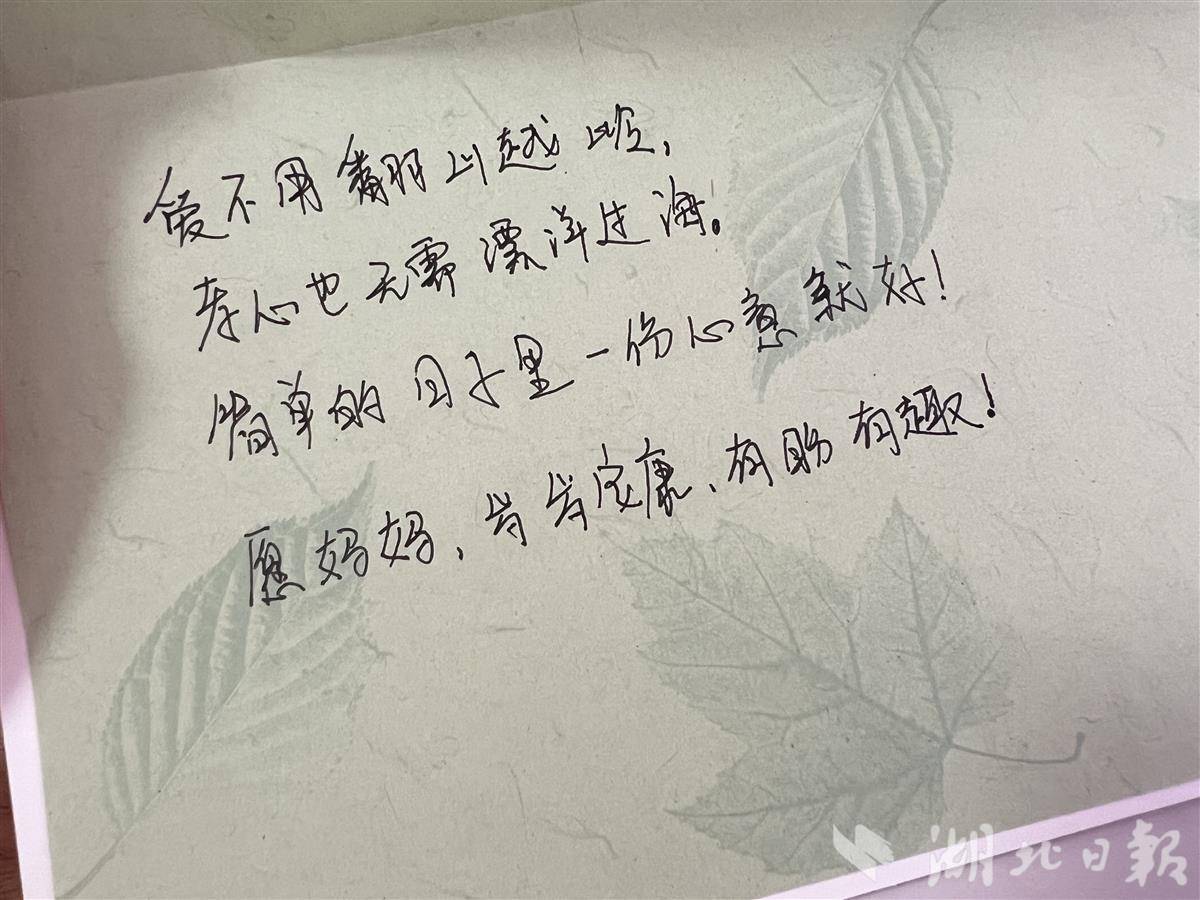 爱不用翻山越岭,
孝心也无需漂洋过海。
简单的日子里一份心意就好!
愿妈妈,岁岁安康、有盼有趣!
湖北日報